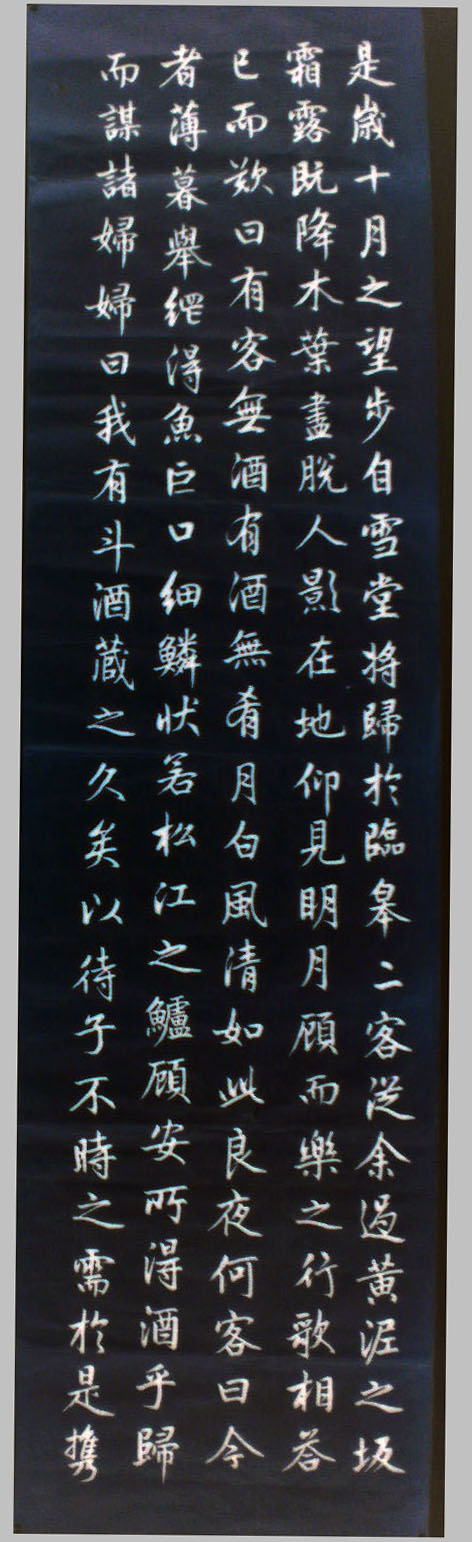 是歲十月之望步自雪堂將歸於臨皋二客從余過黃泥之坂
霜露既降木葉盡脫人影在地仰見明月顧而樂之行歌相答
已而歎曰有客無酒有酒無肴月白風清如此良夜何客曰今
者薄暮舉網得魚巨口細鱗狀若松江之鱸顧安所得酒乎歸
而謀諸婦婦曰我有斗酒藏之久矣以待子不時之需於是攜